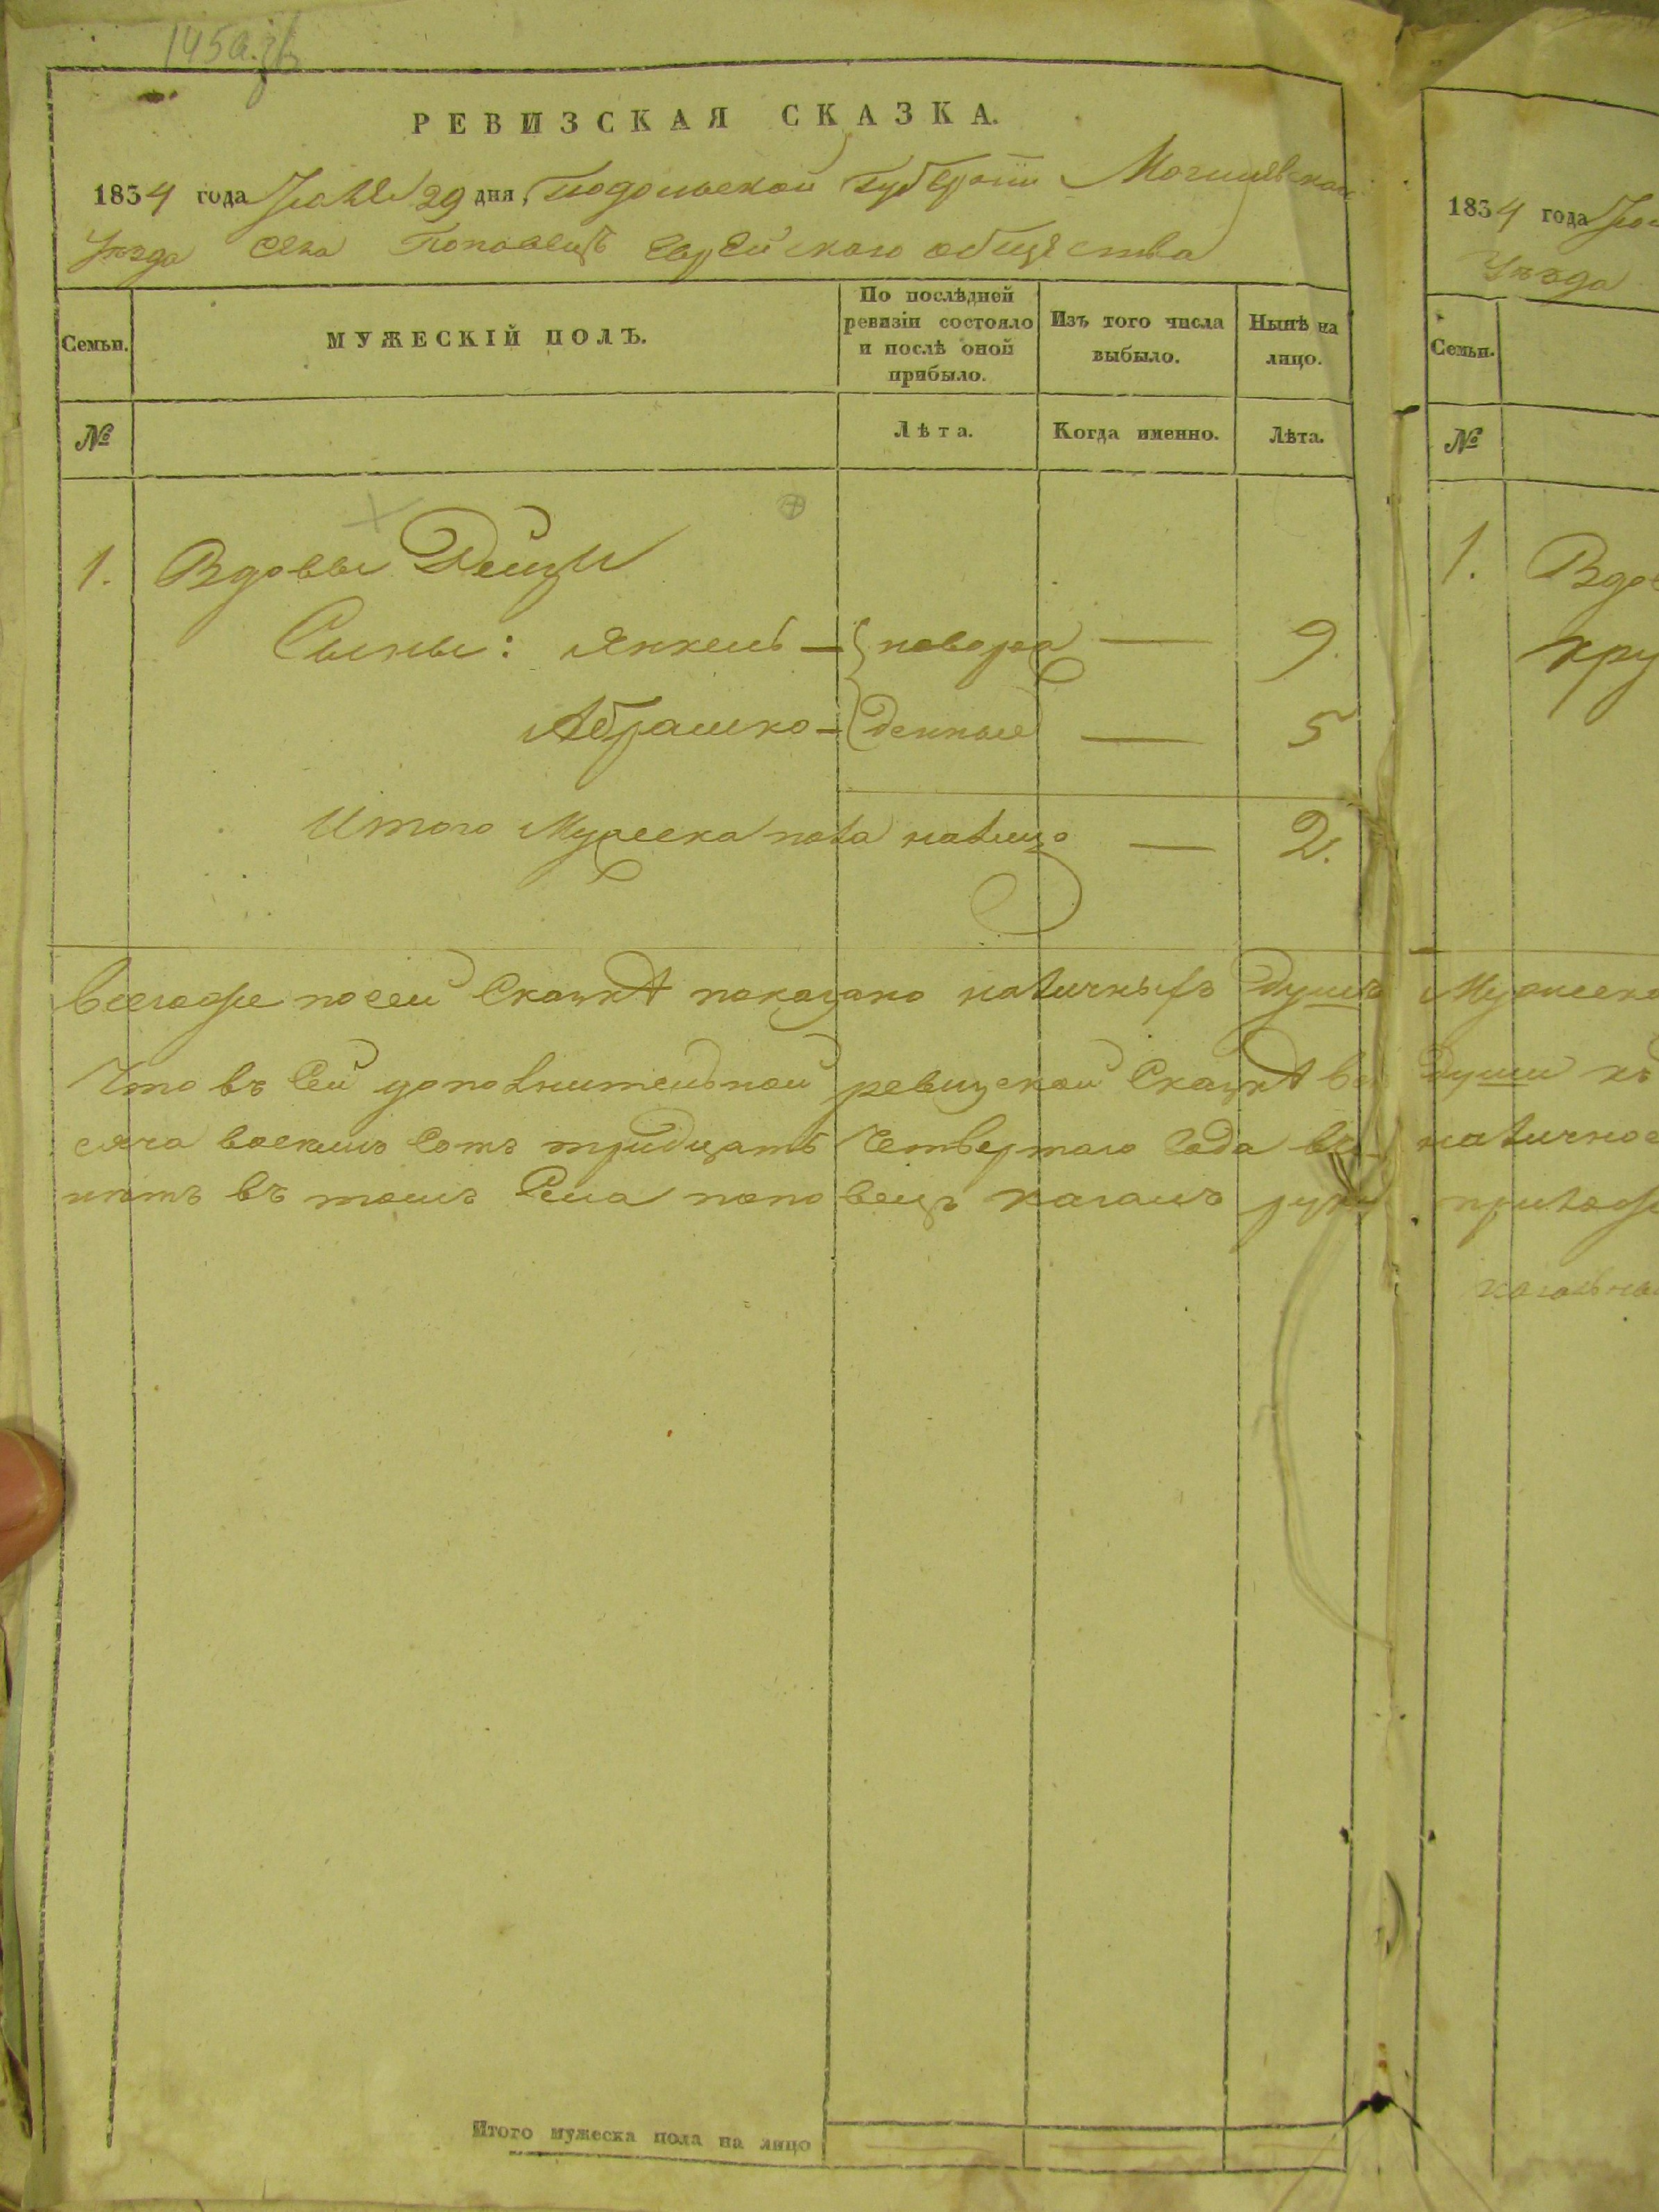 145 а.
РЕВИЗСКАЯ СКАЗКА.
1834 года Іюля 29 дня, Подольской Губерніи Могилевскаго
Уѣзда села Поповецъ Еврейскаго общества
Семьи.
МУЖЕСКІЙ ПОЛЪ.
По послѣдней ревизіи состояло и послѣ оной прибыло.
Изъ того числа выбыло.
Нынѣ на лицо.
№
Лѣта.
Когда именно.
Лѣта.
1. Вдовы
Сыны: Янкель — новоро — 9.
Абрашко — денные — 5
Итого Мужеска пола налицо — 2.
Всегоже по сей Сказкѣ показано наличныхъ душъ
Что въ Сей дополнительной ревизской Сказкѣ
сяча восемь Сотъ тридцать Четвертаго Года
нѣтъ въ томъ Села поповецъ кагалъ
Итого мужеска пола на лицо
1834 года
Уѣзда
Семьи.
№
1. Вдов
Мужеска
души
налично